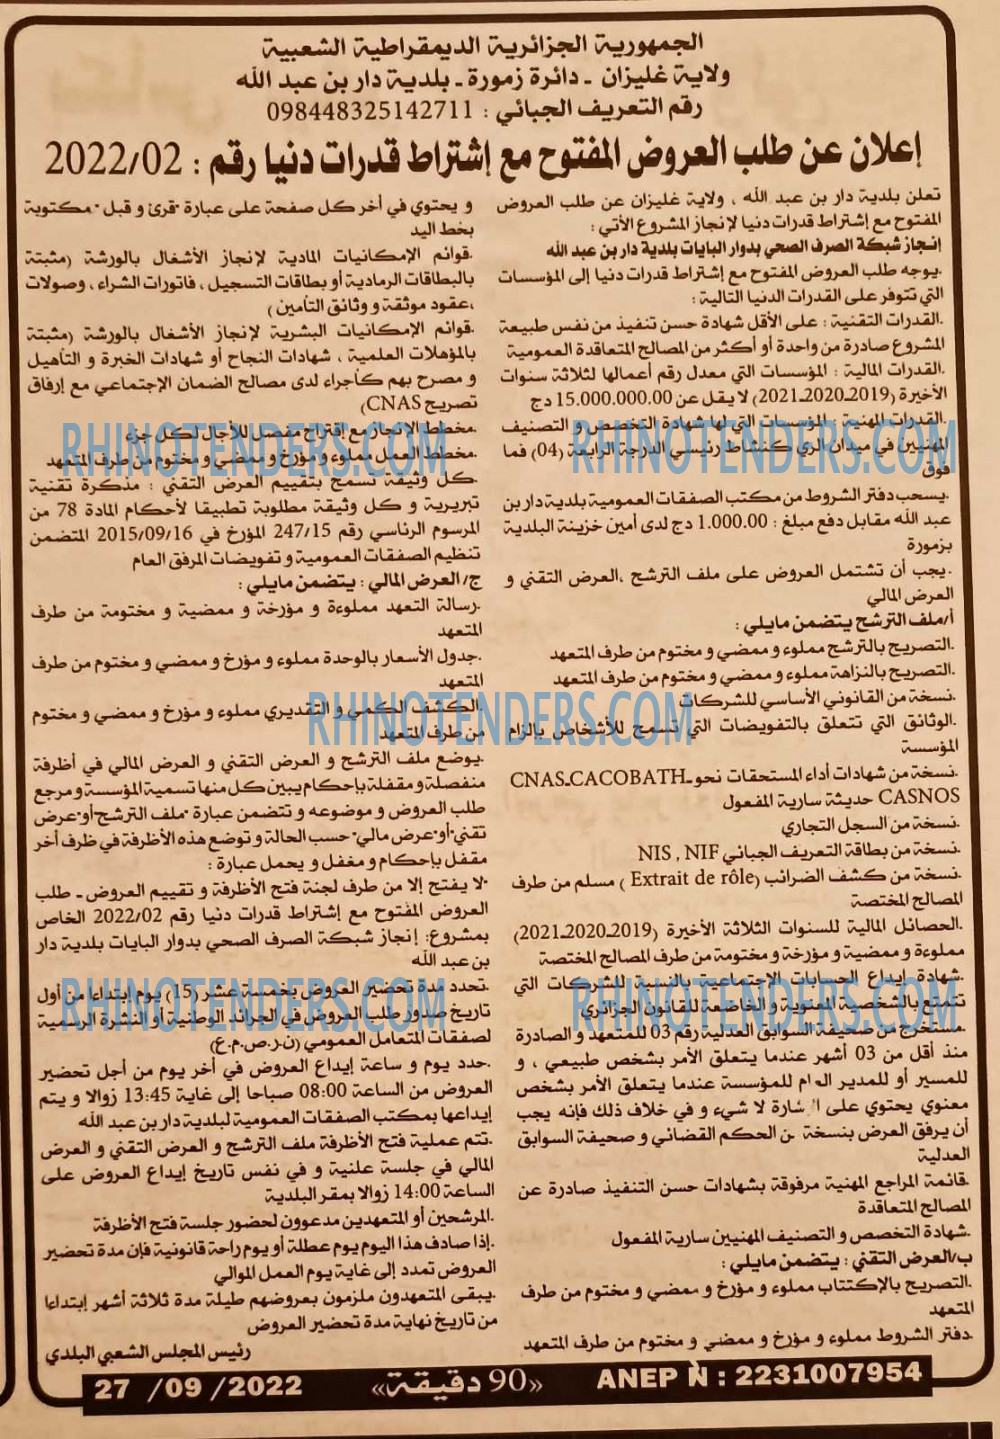 الجمهورية الجزائرية الديمقراطية الشعبية
ولاية غليزان ـ دائرة زمورة ـ بلدية دار بن عبد الله
رقم التعريف الجبائي : 098448325142711
إعلان عن طلب العروض المفتوح مع إشتراط قدرات دنيا رقم : 2022/02
تعلن بلدية دار بن عبد الله ، ولاية غليزان عن طلب العروض
المفتوح مع إشتراط قدرات دنيا لإنجاز المشروع الأتي :
إنجاز شبكة الصرف الصحي بدوار البايات بلدية دار بن عبد الله
.يوجه طلب العروض المفتوح مع إشتراط قدرات دنيا إلى المؤسسات
التي تتوفر على القدرات الدنيا التالية :
.القدرات التقنية : على الأقل شهادة حسن تنفيذ من نفس طبيعة
المشروع صادرة من واحدة أو أكثر من المصالح المتعاقدة العمومية
.القدرات المالية : المؤسسات التي معدل رقم أعمالها لثلاثة سنوات
الأخيرة (2019ـ2020ـ2021) لا يقل عن 15.000.000.00 دج
.القدرات المهنية : المؤسسات التي لها شهادة التخصص و التصنيف
المهنيين في ميدان الري كنشاط رئيسي الدرجة الرابعة (04) فما
فوق
.يسحب دفتر الشروط من مكتب الصفقات العمومية بلدية دار بن
عبد الله مقابل دفع مبلغ : 1.000.00 دج لدى أمين خزينة البلدية
بزمورة
.يجب أن تشتمل العروض على ملف الترشح ،العرض التقني و
العرض المالي
أ/ملف الترشح يتضمن مايلي :
.التصريح بالترشح مملوء و ممضي و مختوم من طرف المتعهد
.التصريح بالنزاهة مملوء و ممضي و مختوم من طرف المتعهد
.نسخة من القانوني الأساسي للشركات
.الوثائق التي تتعلق بالتفويضات التي تسمح للأشخاص بإلزام
المؤسسة
.نسخة من شهادات أداء المستحقات نحو ـCNASـCACOBATH
CASNOS حديثة سارية المفعول
.نسخة من السجل التجاري
.نسخة من بطاقة التعريف الجبائي NIS , NIF
.نسخة من كشف الضرائب (Extrait de rôle ) مسلم من طرف
المصالح المختصة
.الحصائل المالية للسنوات الثلاثة الأخيرة (2019ـ2020ـ2021)
مملوءة و ممضية و مؤرخة و مختومة من طرف المصالح المختصة
.شهادة إيداع الحسابات الإجتماعية بالنسبة للشركات التي
تتمتع بالشخصية المعنوية و الخاضعة للقانون الجزائري
.مستخرج من صحيفة السوابق العدلية رقم 03 للمتعهد و الصادرة
منذ أقل من 03 أشهر عندما يتعلق الأمر بشخص طبيعي ، و
للمسير أو للمدير العام للمؤسسة عندما يتعلق الأمر بشخص
معنوي يحتوي على الإشارة لا شيء و في خلاف ذلك فإنه يجب
أن يرفق العرض بنسخة من الحكم القضائي و صحيفة السوابق
العدلية
.قائمة المراجع المهنية مرفوقة بشهادات حسن التنفيذ صادرة عن
المصالح المتعاقدة
.شهادة التخصص و التصنيف المهنيين سارية المفعول
ب/العرض التقني : يتضمن مايلي :
.التصريح بالإكتتاب مملوء و مؤرخ و ممضي و مختوم من طرف
المتعهد
.دفتر الشروط مملوء و مؤرخ و ممضي و مختوم من طرف المتعهد
و يحتوي في أخر كل صفحة على عبارة "قرئ و قبل " مكتوبة
بخط اليد
.قوائم الإمكانيات المادية لإنجاز الأشغال بالورشة (مثبتة
بالبطاقات الرمادية أو بطاقات التسجيل ، فاتورات الشراء ، وصولات
،عقود موثقة و وثائق التأمين )
.قوائم الإمكانيات البشرية لإنجاز الأشغال بالورشة (مثبتة
بالمؤهلات العلمية ، شهادات النجاح أو شهادات الخبرة و التأهيل
و مصرح بهم كأجراء لدى مصالح الضمان الإجتماعي مع إرفاق
تصريح CNAS)
.مخطط الإنجاز مع إقتراح مفصل للأجال لكل جزء
.مخطط العمل مملوء و مؤرخ و ممضي و مختوم من طرف المتعهد
.كل وثيقة تسمح بتقييم العرض التقني : مذكرة تقنية
تبريرية و كل وثيقة مطلوبة تطبيقا لأحكام المادة 78 من
المرسوم الرئاسي رقم 247/15 المؤرخ في 2015/09/16 المتضمن
تنظيم الصفقات العمومية و تفويضات المرفق العام
ج/ العرض المالي : يتضمن مايلي :
.رسالة التعهد مملوءة و مؤرخة و ممضية و مختومة من طرف
المتعهد
.جدول الأسعار بالوحدة مملوء و مؤرخ و ممضي و مختوم من طرف
المتعهد
.الكشف الكمي و التقديري مملوء و مؤرخ و ممضي و مختوم
من طرف المتعهد
.يوضع ملف الترشح و العرض التقني و العرض المالي في أظرفة
منفصلة و مقفلة بإحكام يبين كل منها تسمية المؤسسة و مرجع
طلب العروض و موضوعه و تتضمن عبارة "ملف الترشح"أو"عرض
تقني"أو"عرض مالي" حسب الحالة و توضع هذه الأظرفة في ظرف أخر
مقفل بإحكام و مغفل و يحمل عبارة :
"لا يفتح إلا من طرف لجنة فتح الأظرفة و تقييم العروض ـ طلب
العروض المفتوح مع إشتراط قدرات دنيا رقم 2022/02 الخاص
بمشروع: إنجاز شبكة الصرف الصحي بدوار البايات بلدية دار
بن عبد الله
.تحدد مدة تحضير العروض بخمسة عشر (15) يوم إبتداءا من أول
تاريخ صدور طلب العروض في الجرائد الوطنية أو النشرة الرسمية
لصفقات المتعامل العمومي (ن.ر.ص.م.ع)
.حدد يوم و ساعة إيداع العروض في أخر يوم من أجل تحضير
العروض من الساعة 08:00 صباحا إلى غاية 13:45 زوالا و يتم
إيداعها بمكتب الصفقات العمومية لبلدية دار بن عبد الله
.تتم عملية فتح الأظرفة ملف الترشح و العرض التقني و العرض
المالي في جلسة علنية و في نفس تاريخ إيداع العروض على
الساعة 14:00 زوالا بمقر البلدية
.المرشحين أو المتعهدين مدعوون لحضور جلسة فتح الأظرفة
.إذا صادف هذا اليوم يوم عطلة أو يوم راحة قانونية فإن مدة تحضير
العروض تمدد إلى غاية يوم العمل الموالي
.يبقى المتعهدون ملزمون بعروضهم طيلة مدة ثلاثة أشهر إبتداءا
من تاريخ نهاية مدة تحضير العروض
رئيس المجلس الشعبي البلدي
27 /09 /2022 «90 دقيقة» ANEP N : 2231007954
RHINOTENDERS.COM RHINOTENDERS.COM
RHINOTENDERS.COM
RHINOTENDERS.COM RHINOTENDERS.COM